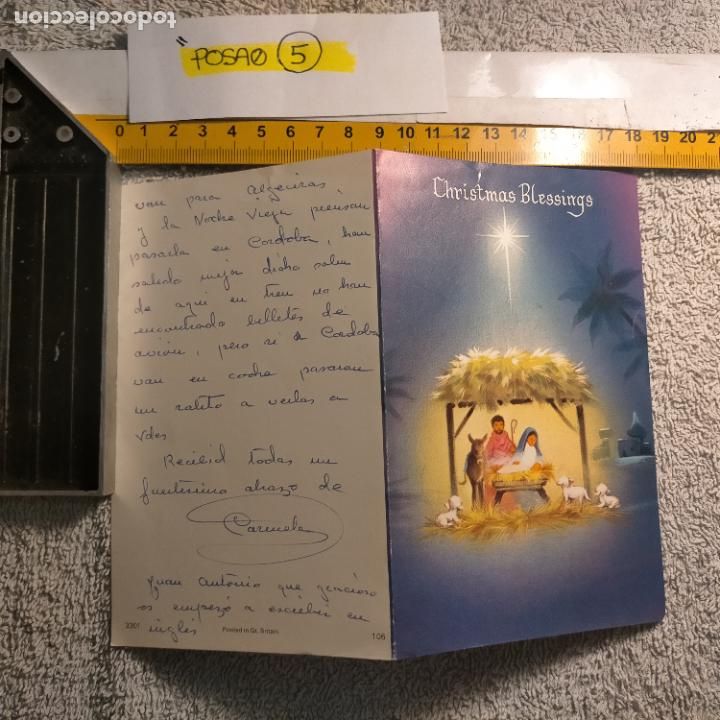 todocoleccion
" POSAO 5
0 1 2 3 4 5 6 7 8 9 10 11 12 13 14 15 16 17 18 19 20 21
van para Algeciras
y la Noche Vieja piensan
pasarla en Cordoba, han
salido mejor dicho salen
de aqui en tren no han
encontrado billetes de
avión, pero si a Cordoba
van en coche pasaran
un ratito a verlas a
Vdes
Recibid todas un
fuertísimo abrazo de
Carmela
Juan António que gracioso
os empezó a escribir en
inglés
3301 Printed in Gt. Britain 106
Christmas Blessings